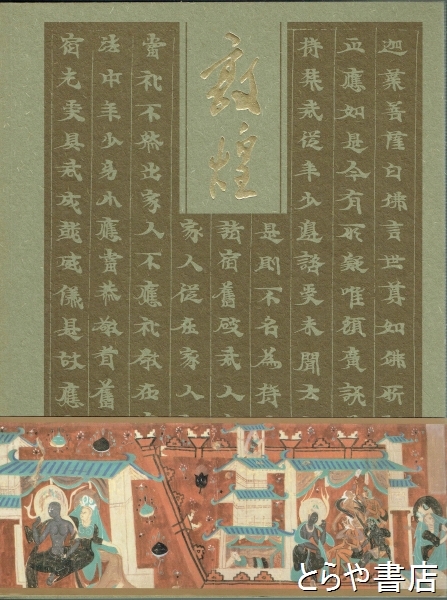 敦煌
迦葉菩薩白佛言世尊如佛所
正應如是今有所疑唯願廣説
持禁戒從年少邊諮受未聞云
是則不名為持
諸宿舊破戒人
家人從在家人
當礼不然出家人不應礼敬在
法中年少幼小應當恭敬耆舊
宿先受具戒成就威儀是故應
とらや書店